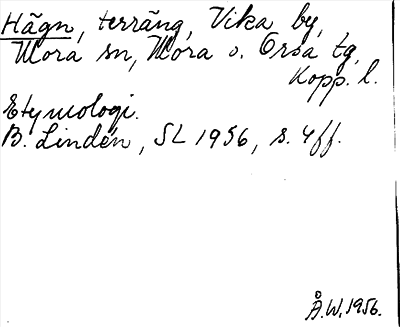 Hägn, terräng, Vika by,
Mora sn, Mora o. Orsa tg,
Kopp. l.
Etymologi.
B. Lindén, SL 1956, s. 4ff.
Å.W. 1956.